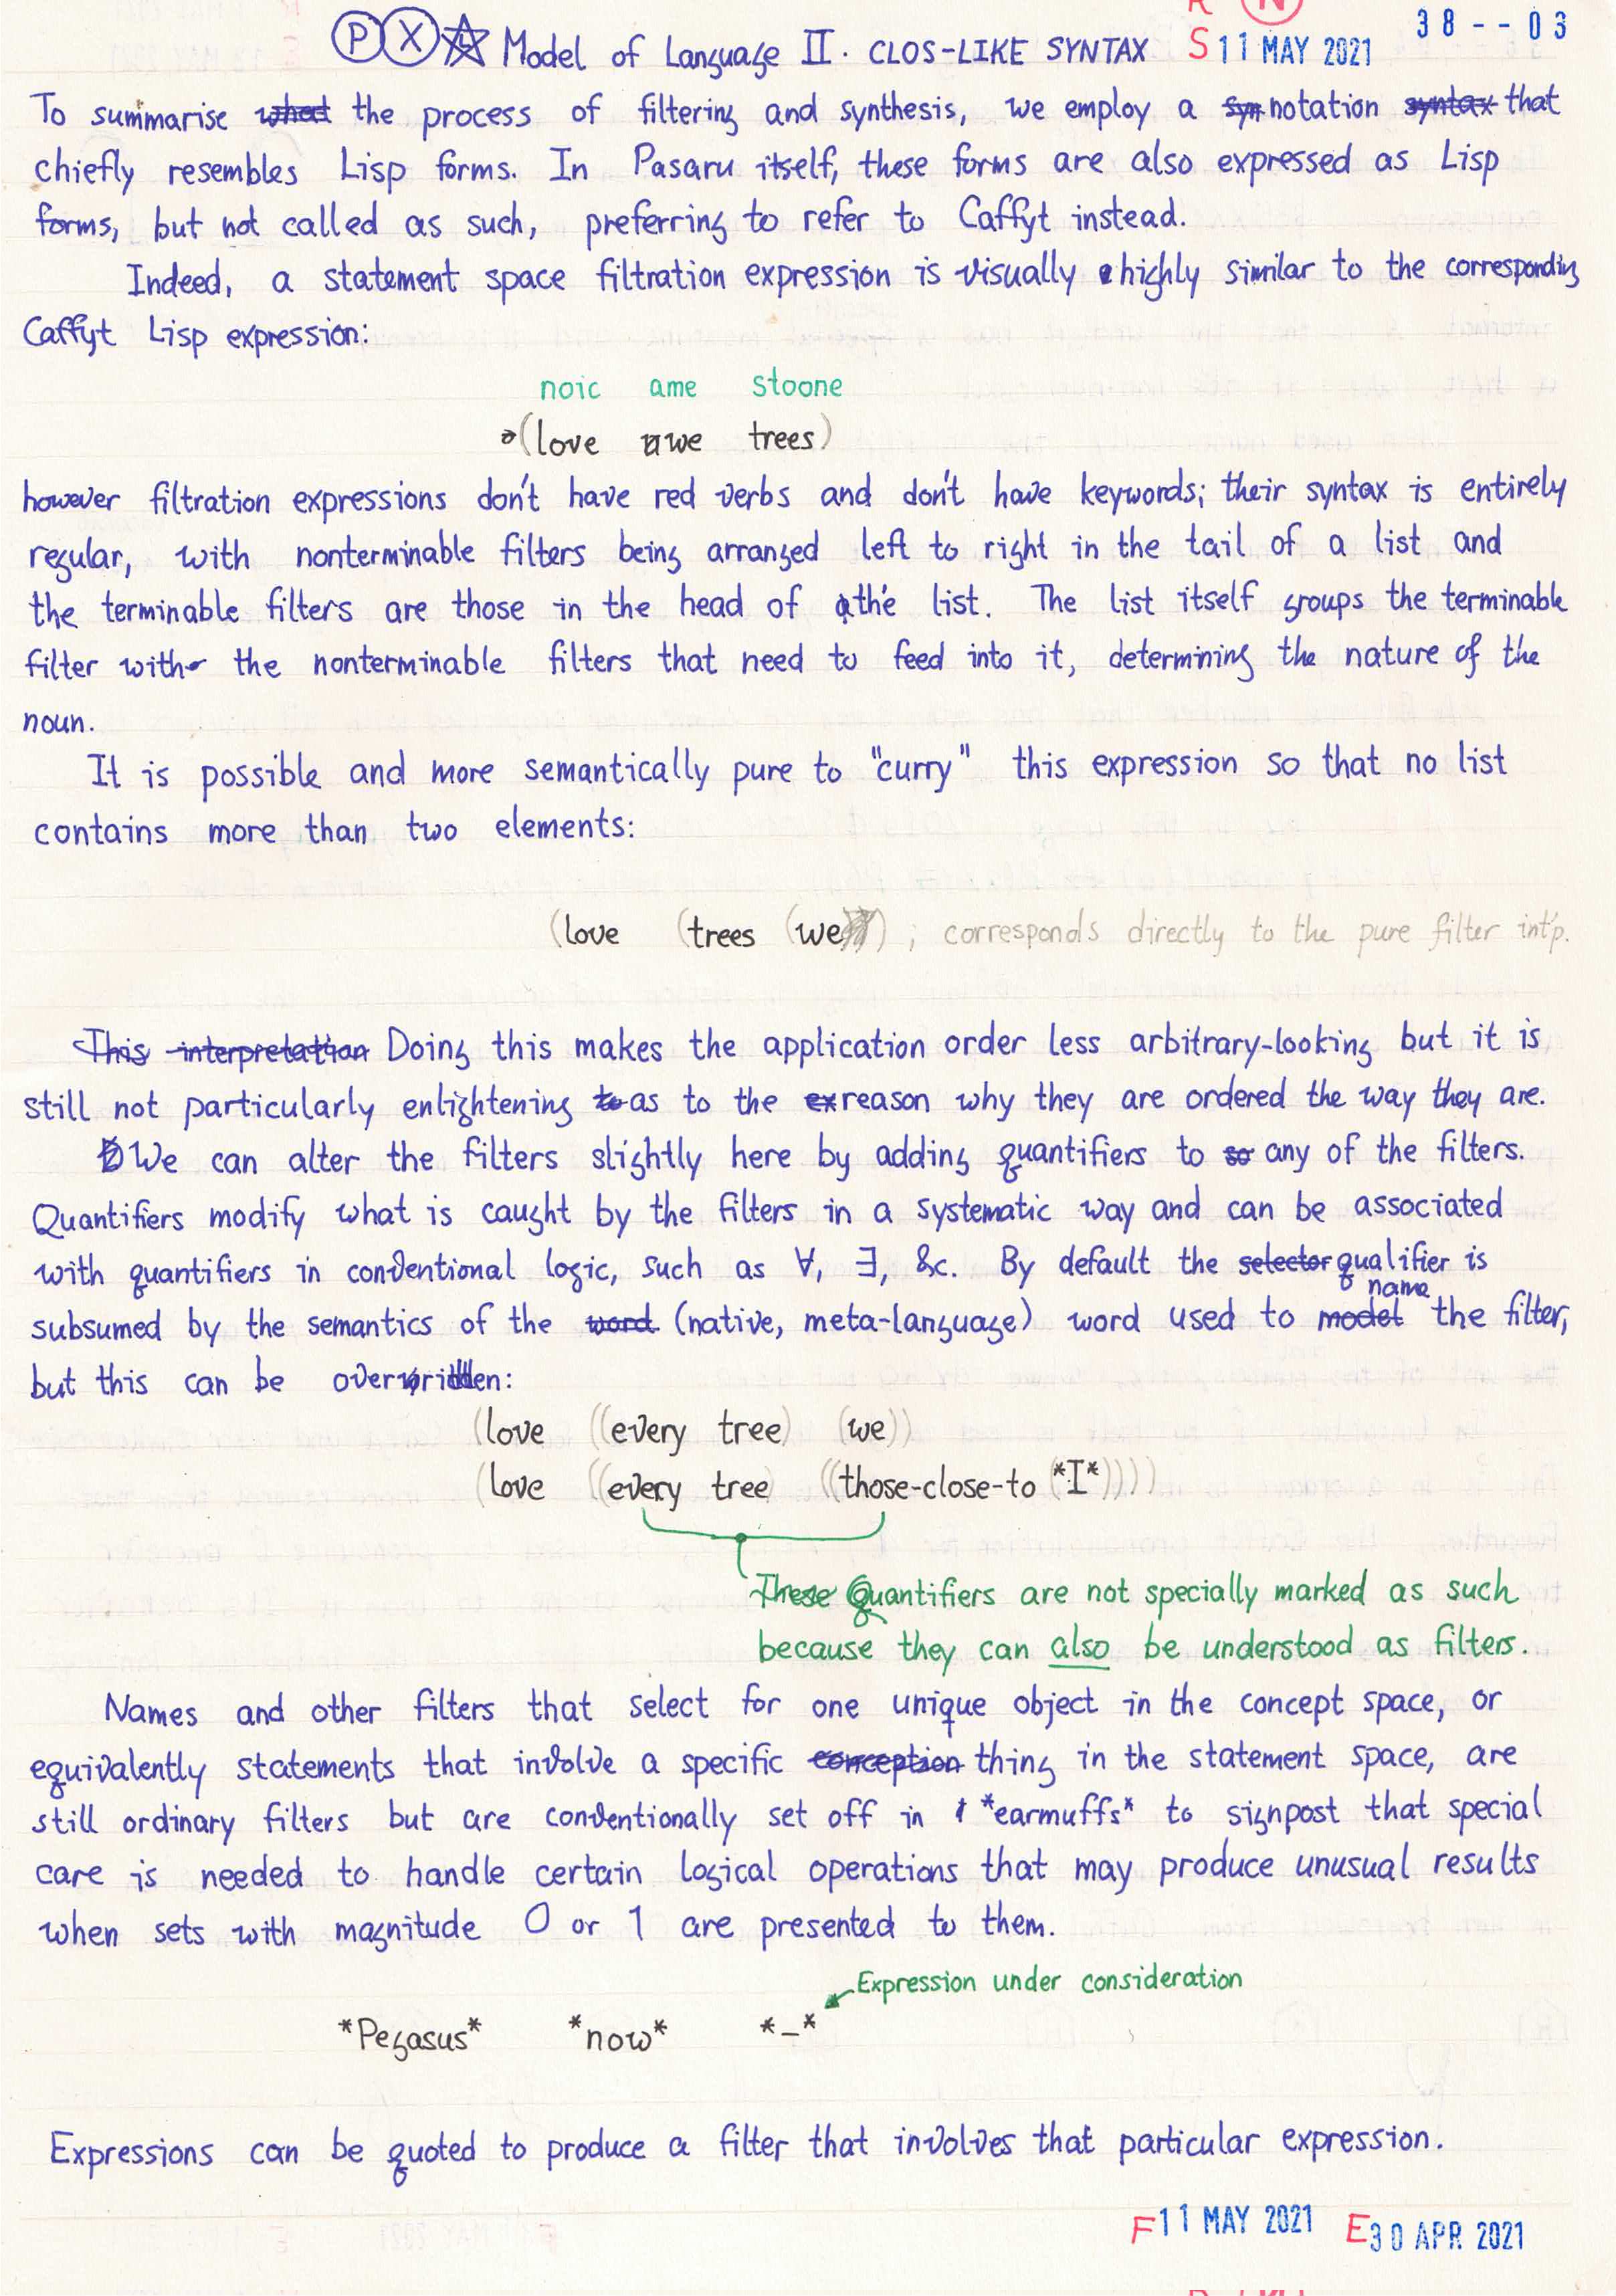 R N
38--03
P X Model of Language II. CLOS-LIKE SYNTAX S 11 MAY 2021
To summarise what the process of filtering and synthesis, we employ a syn notation syntax that
chiefly resembles Lisp forms. In Pasaru itself, these forms are also expressed as Lisp
forms, but not called as such, preferring to refer to Caffyt instead.
Indeed, a statement space filtration expression is visually highly similar to the corresponding
Caffyt Lisp expression:
noic ame stoone
(love we trees)
however filtration expressions don't have red verbs and don't have keywords; their syntax is entirely
regular, with nonterminable filters being arranged left to right in the tail of a list and
the terminable filters are those in the head of the list. The list itself groups the terminable
filter with the nonterminable filters that need to feed into it, determining the nature of the
noun.
It is possible and more semantically pure to "curry" this expression so that no list
contains more than two elements:
(love (trees (we ) ; corresponds directly to the pure filter int'p.
This interpretation Doing this makes the application order less arbitrary-looking but it is
still not particularly enlightening to as to the ex reason why they are ordered the way they are.
We can alter the filters slightly here by adding quantifiers to so any of the filters.
Quantifiers modify what is caught by the filters in a systematic way and can be associated
with quantifiers in conventional logic, such as ∀, ∃, &c. By default the selector qualifier is
subsumed by the semantics of the word (native, meta-language) word used to model name the filter,
but this can be overridden:
(love ((every tree) (we))
(love ((every tree) ((those-close-to (*I*))))
These Quantifiers are not specially marked as such
because they can also be understood as filters.
Names and other filters that select for one unique object in the concept space, or
equivalently statements that involve a specific conception thing in the statement space, are
still ordinary filters but are conventionally set off in *earmuffs* to signpost that special
care is needed to handle certain logical operations that may produce unusual results
when sets with magnitude 0 or 1 are presented to them.
Expression under consideration
*Pegasus* *now* *_*
Expressions can be quoted to produce a filter that involves that particular expression.
F 11 MAY 2021 E 30 APR 2021